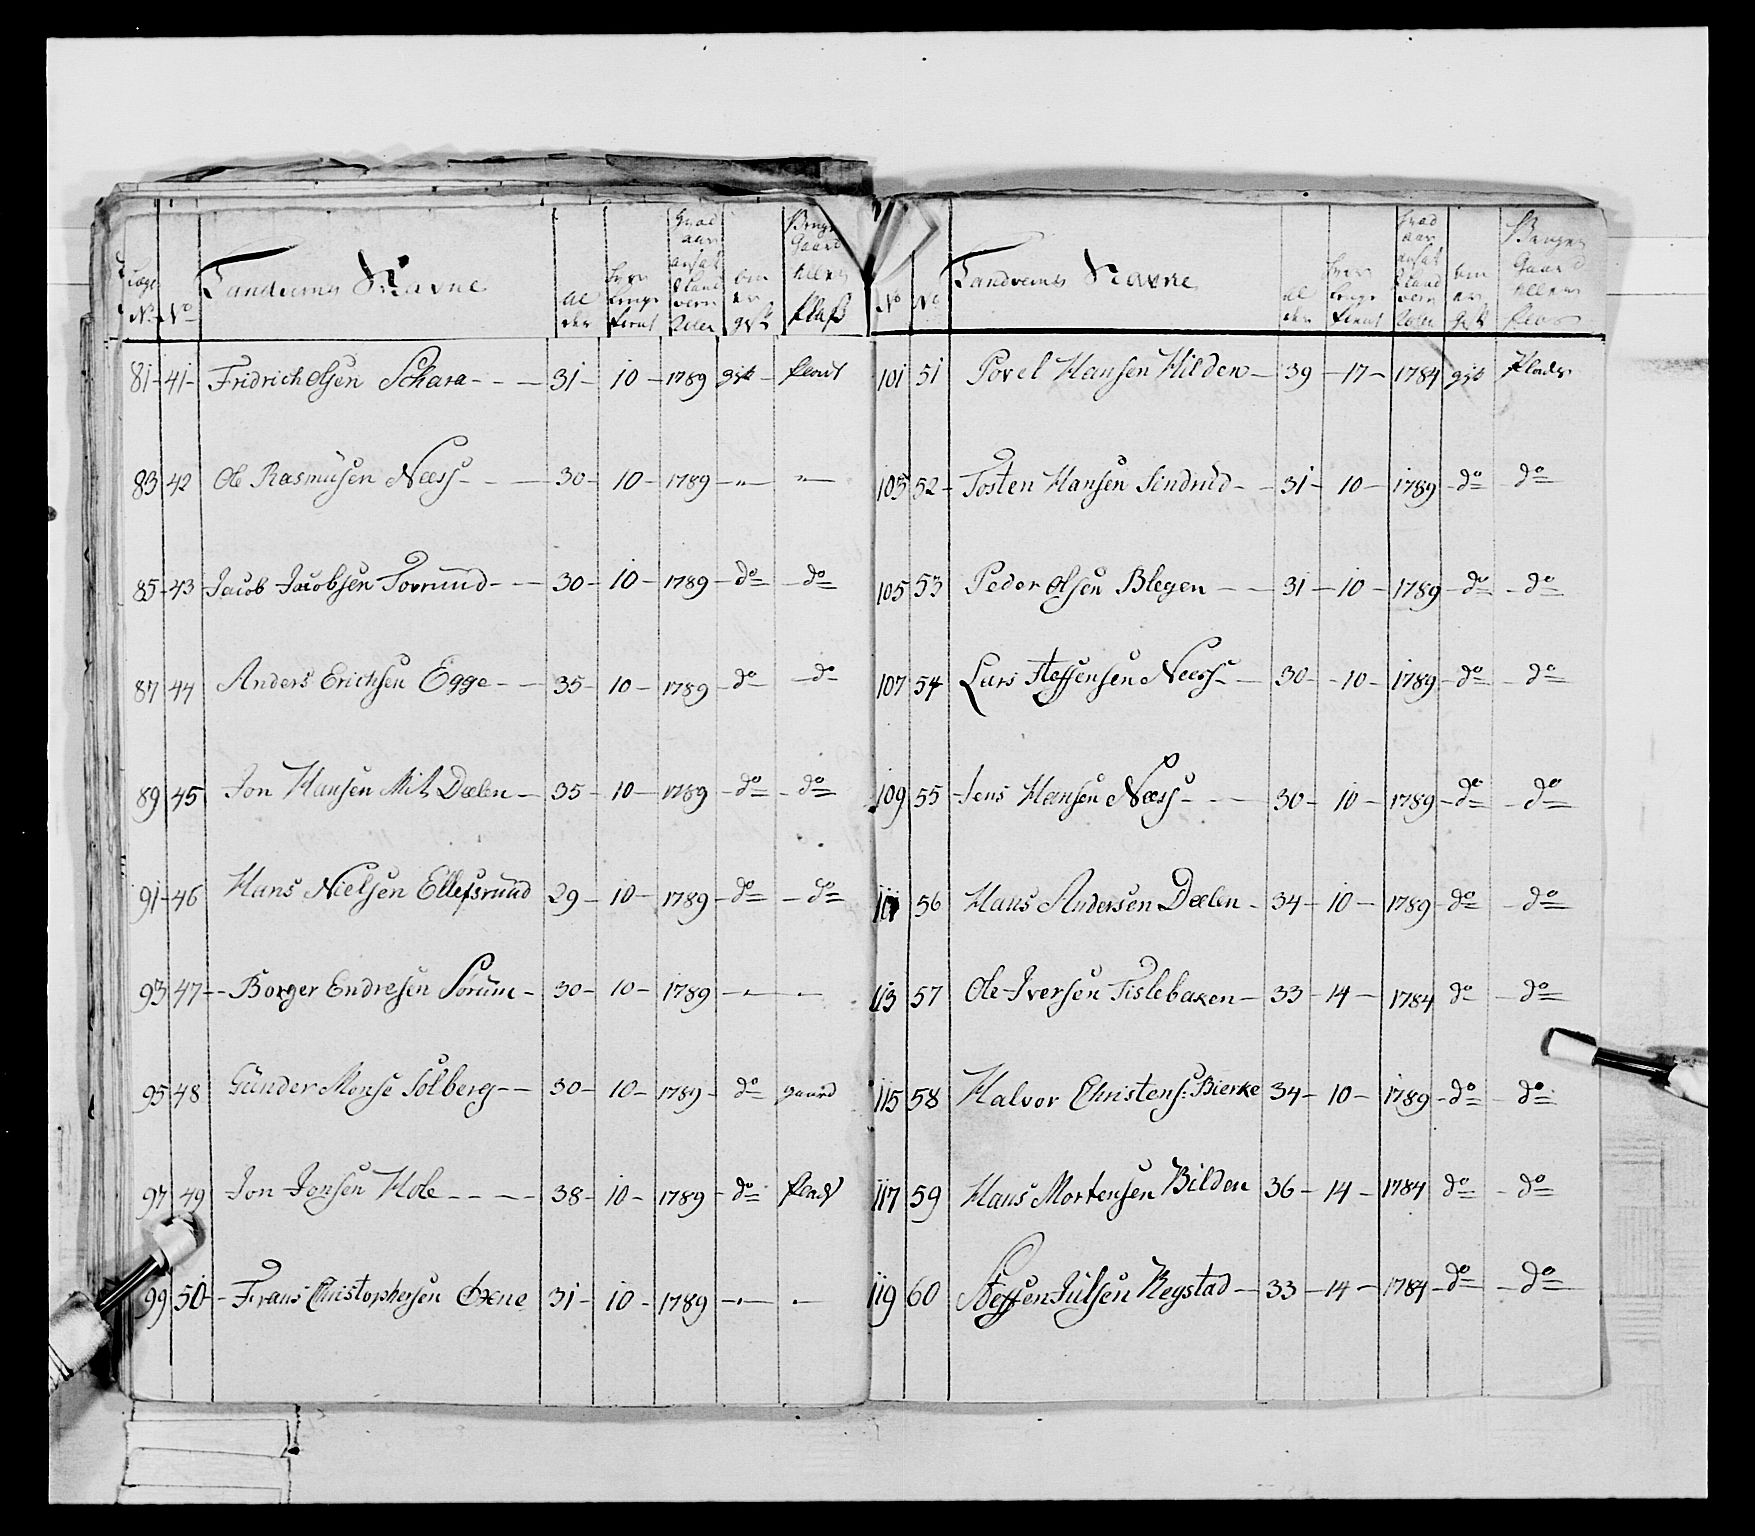 No No Landverns Navne Al der hvor lenge tient hvad aar ansat i Land vern Rullen om er gift Bruger Gaard eller Plass
81 - 41 - Fridrich Olsen Schara - - - 31 - 10 - 1789 gift - Plads
83 42 Ole Rasmusen Næss - - - 30 - 10 - 1789 - " - " -
85 - 43 - Jacob Jacobsen Sorrund - - - 30 - 10 - 1789 - do - do
87 - 44 Anders Erichsen Egge - - 35 - 10 - 1789 - do - do
89 45 Jon Hansen Mit Dælen - 35 - 10 - 1789 - do - do
91 - 46 Hans Nielsen Ellefsrund 29 - 10 - 1789 - do - do
93 47 - - Borger Endresen Sørum - 30 - 10 - 1789 - " - " -
95 48 Gunder Monse Solberg - - 30 - 10 - 1789 - do gaard
97 49 Jon Jonsen Hole - - - - 38 - 10 - 1789 - do Plads
99 50 - Frans Christophersen Oxene 31 - 10 - 1789 - " - " -
No No Landverns Navne Al der hvor lenge tient hvad aar ansat i Land vern Rullen om er Gift Bruger Gaard eller Plas
101 51 Povel Hansen Hilden - 39 - 17 - 1784 gift Plads
103 52 - Tosten Hansen Sindrud - - 31 - 10 - 1789 - do - do
105 53 Peder Olsen Blegen - - 31 - 10 - 1789 - do - do
107 54 Lars Steffensen Næss - - 30 - - 10 - 1789 - do - do
109 55 - Jens Hansen Næss - - - 30 - 10 - 1789 - do - do
111 56 Hans Andersen Dælen - 34 - 10 - 1789 - do - do
113 57 Ole Iversen Tislebaxen - 33 - 14 - 1784 do - do
115 58 Halvor Christens: Bierke 34 - 10 - 1789 - do - do
117 59 Hans Mortensen Bilden 36 - 14 - 1784 do - do
119 60 Steffen Julsen Regstad - 33 - 14 - 1784 - do - do